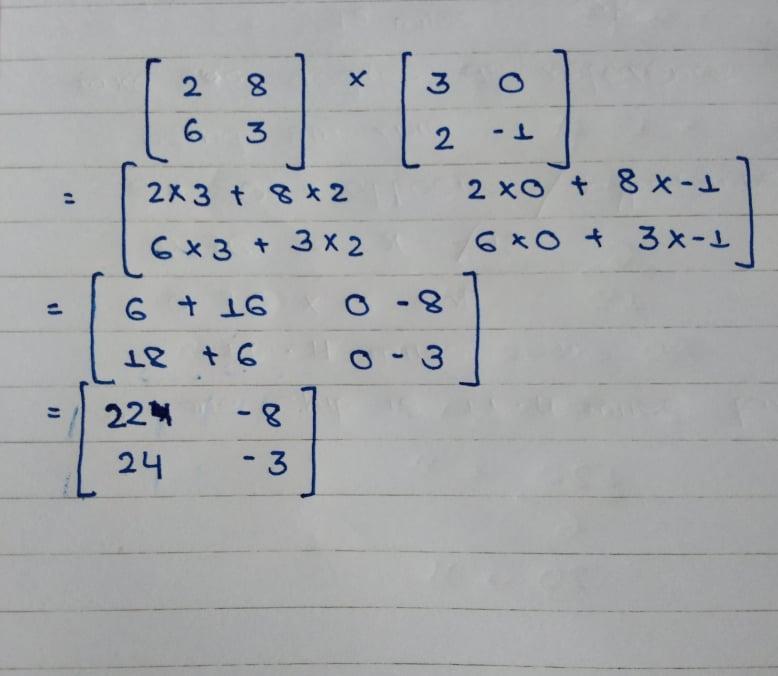 [ 2 8 ] × [ 3 0 ]
[ 6 3 ] [ 2 -1 ]
= [ 2×3 + 8×2 2×0 + 8×-1 ]
[ 6×3 + 3×2 6×0 + 3×-1 ]
= [ 6 + 16 0 - 8 ]
[ 18 + 6 0 - 3 ]
= [ 22 -8 ]
[ 24 -3 ]